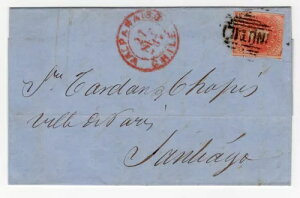 VALPARAISO
CHILE
Sr. Tardan y Chopis
Ville de Paris
Santiago